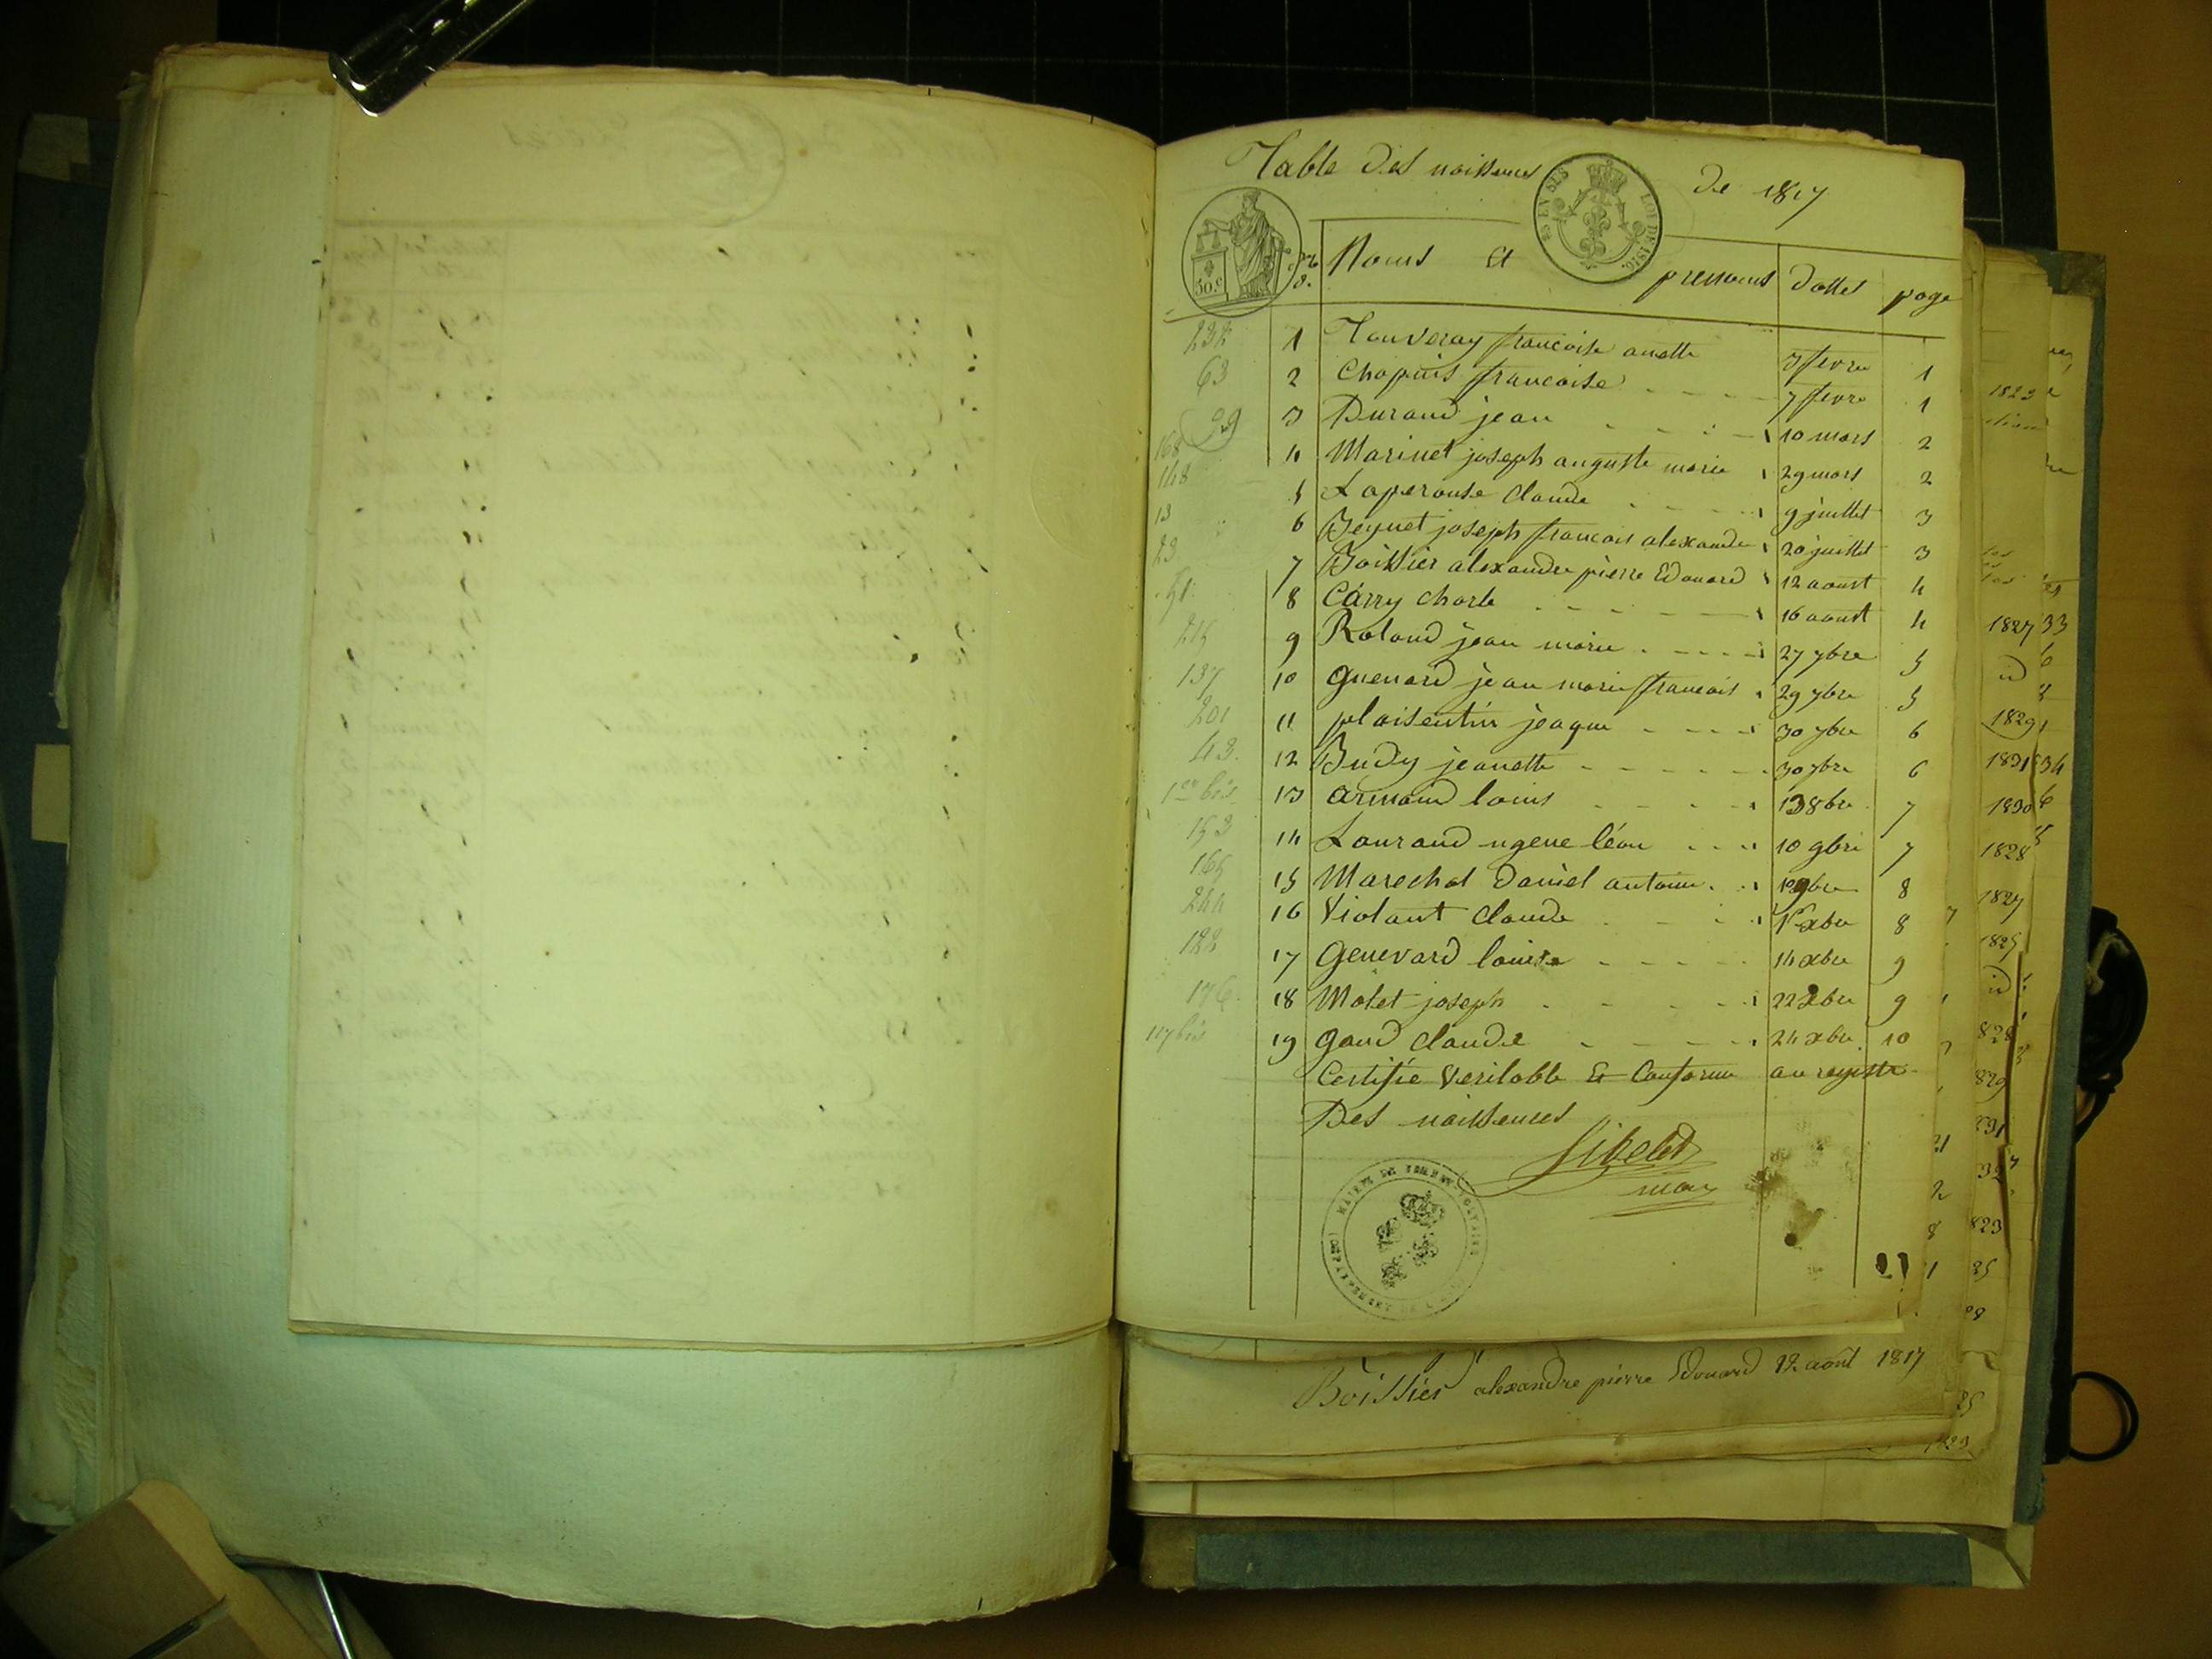 Table des naissences de 1817
EN SUS
LOI DE 1816.
50.c
Noms et prenoms dattes page
232 1 françoise anette 3 fevre 1
63 2 Chapuis francoise 7 fevre 1
29 3 Durand jean 10 mars 2
168 4 Marinet joseph auguste marie 29 mars 2
148 5 Laperouse Claude 9 juillet 3
13 6 joseph francois alexandre 20 juillet 3
23 7 Boissier alexandre pierre Edouard 12 aoust 4
51 8 Carry charle 16 aoust 4
215 9 Roland jean marie 27 7bre 5
137 10 guenard jean marie francois 29 7bre 5
201 11 plaisentin jeaque 30 7bre 6
43. 12 Budy jeanette 30 7bre 6
1er bis 13 armand louis 13 8bre 7
153 14 Laurand ugene léon 10 9bre 7
165 15 Marechal daniel antoine 12 9bre 8
244 16 Violant claude 1er xbre 8
122 17 genevard louise 14 xbre 9
176. 18 Motet joseph 22 xbre 9
117 bis 19 gand claude 24 xbre 10
Certifié veritable Et Conforme au registre
Des naissences
maire
MAIRIE DE FERNEY VOLTAIRE
Boissier alexandre pierre Edouard 12 août 1817
1823
1827 33
id
1829
1831 34
1830
1828
1827
1825
id
828
829
831
32
823
25
28
25
1823